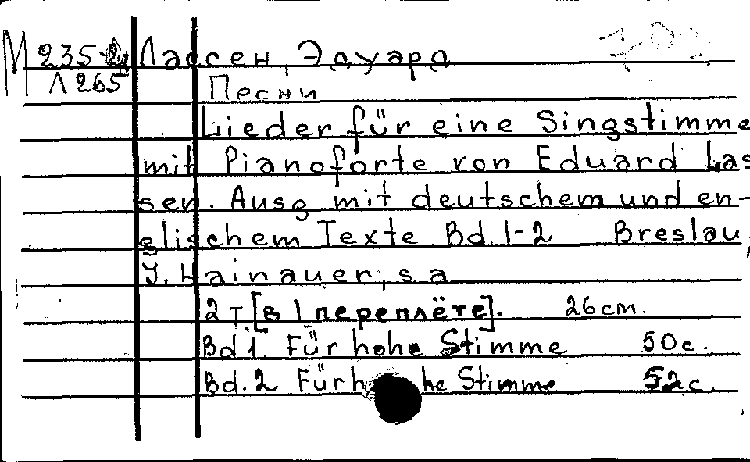 М 235-2 Лассен, Эдуард
Л 265
Песни
Lieder für eine Singstimme
mit Pianoforte von Eduard Las
sen. Ausg mit deutschem und en-
glischem Texte Bd. 1-2 Breslau,
J. Hainauer, s a
2 т [в 1 переплёте]. 26 cm.
Bd 1. Für hohe Stimme 50 c.
Bd. 2 Für hohe Stimme 52 c.